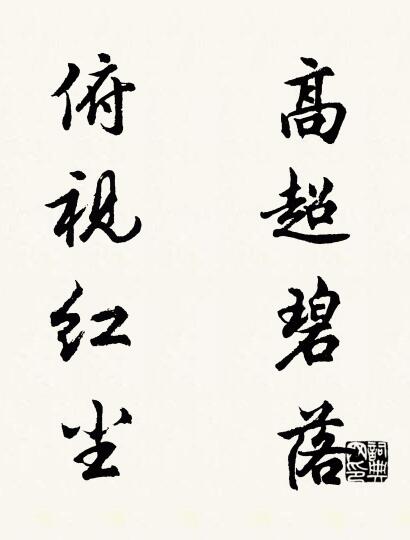 高超碧落
俯视红尘